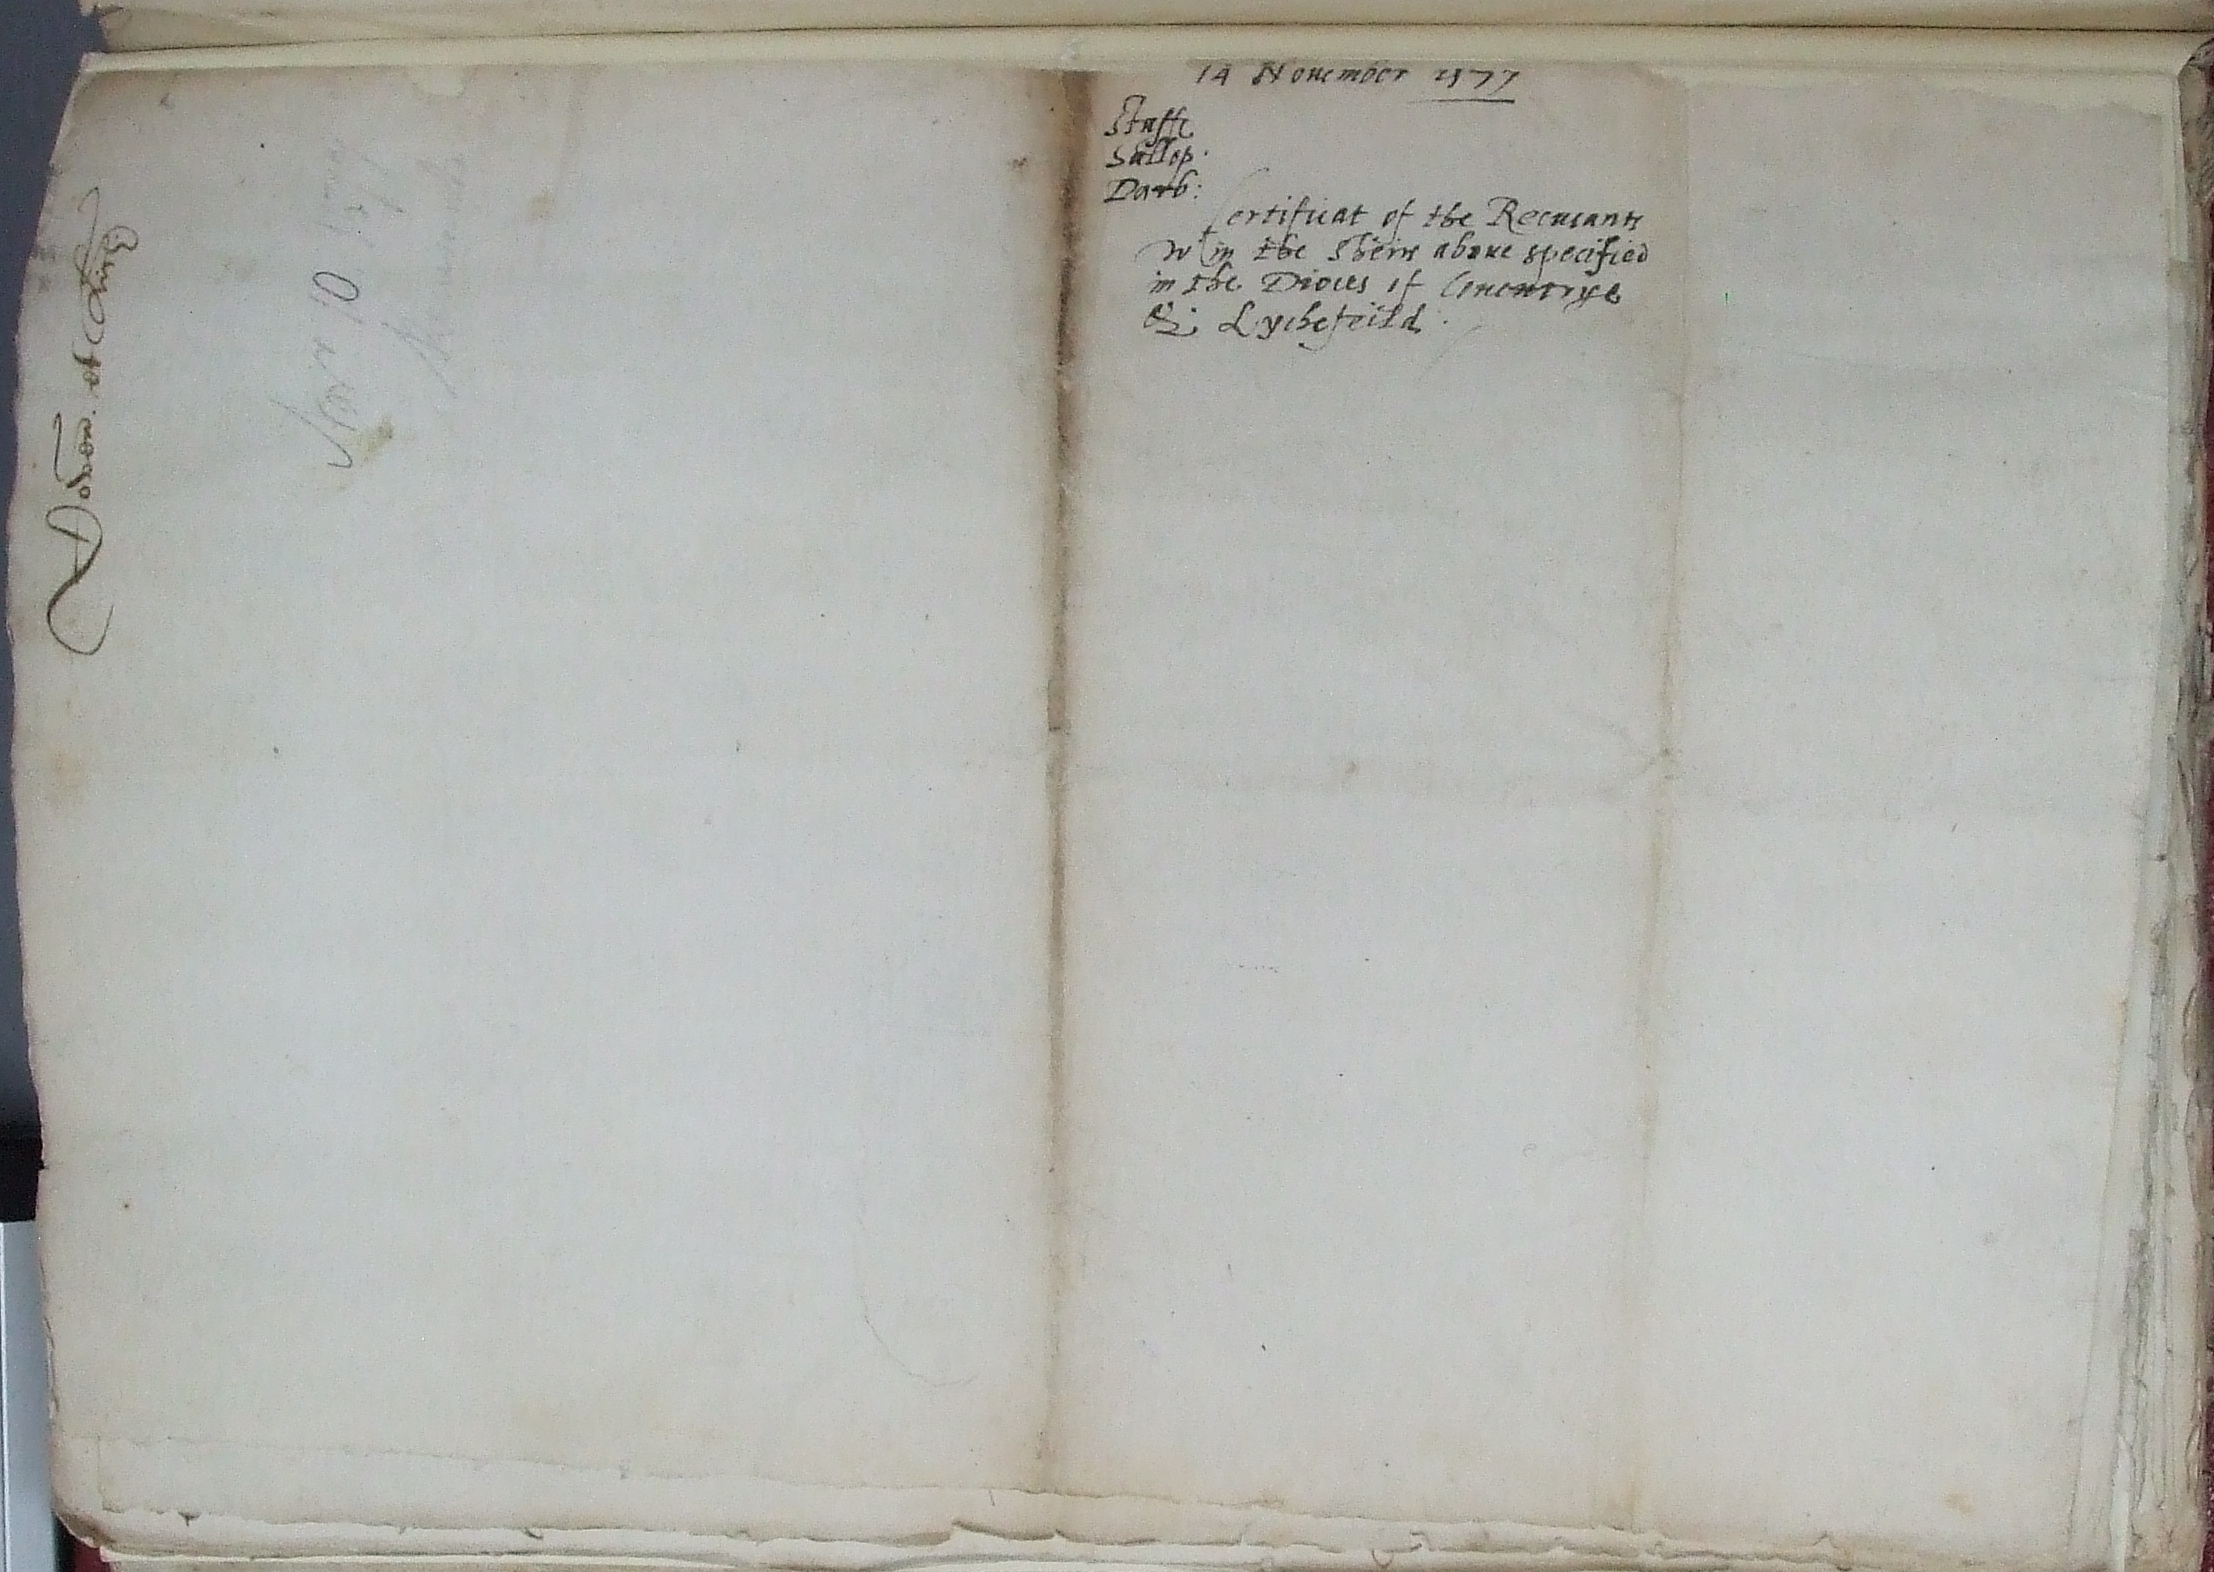 14 November 1577
Staff
Sallop.
Darb:
Certificat of the Recusants
wtin the Sheirs aboue specified
in the Dioces of Couentrye
& Lychefeild.
et